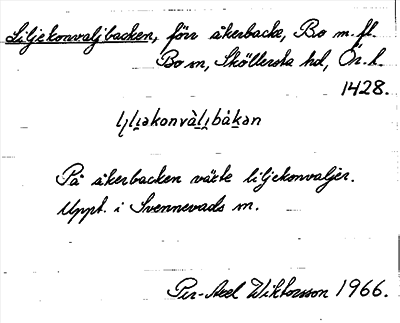 Liljekonvaljbacken, förr åkerbacke, Bo m. fl.
Bo sn, Sköllersta hd, Ör. l.
1428.
På åkerbacken växte liljekonvaljer.
Uppt. i Svennevads sn.
Per-Axel Wiktorsson 1966.